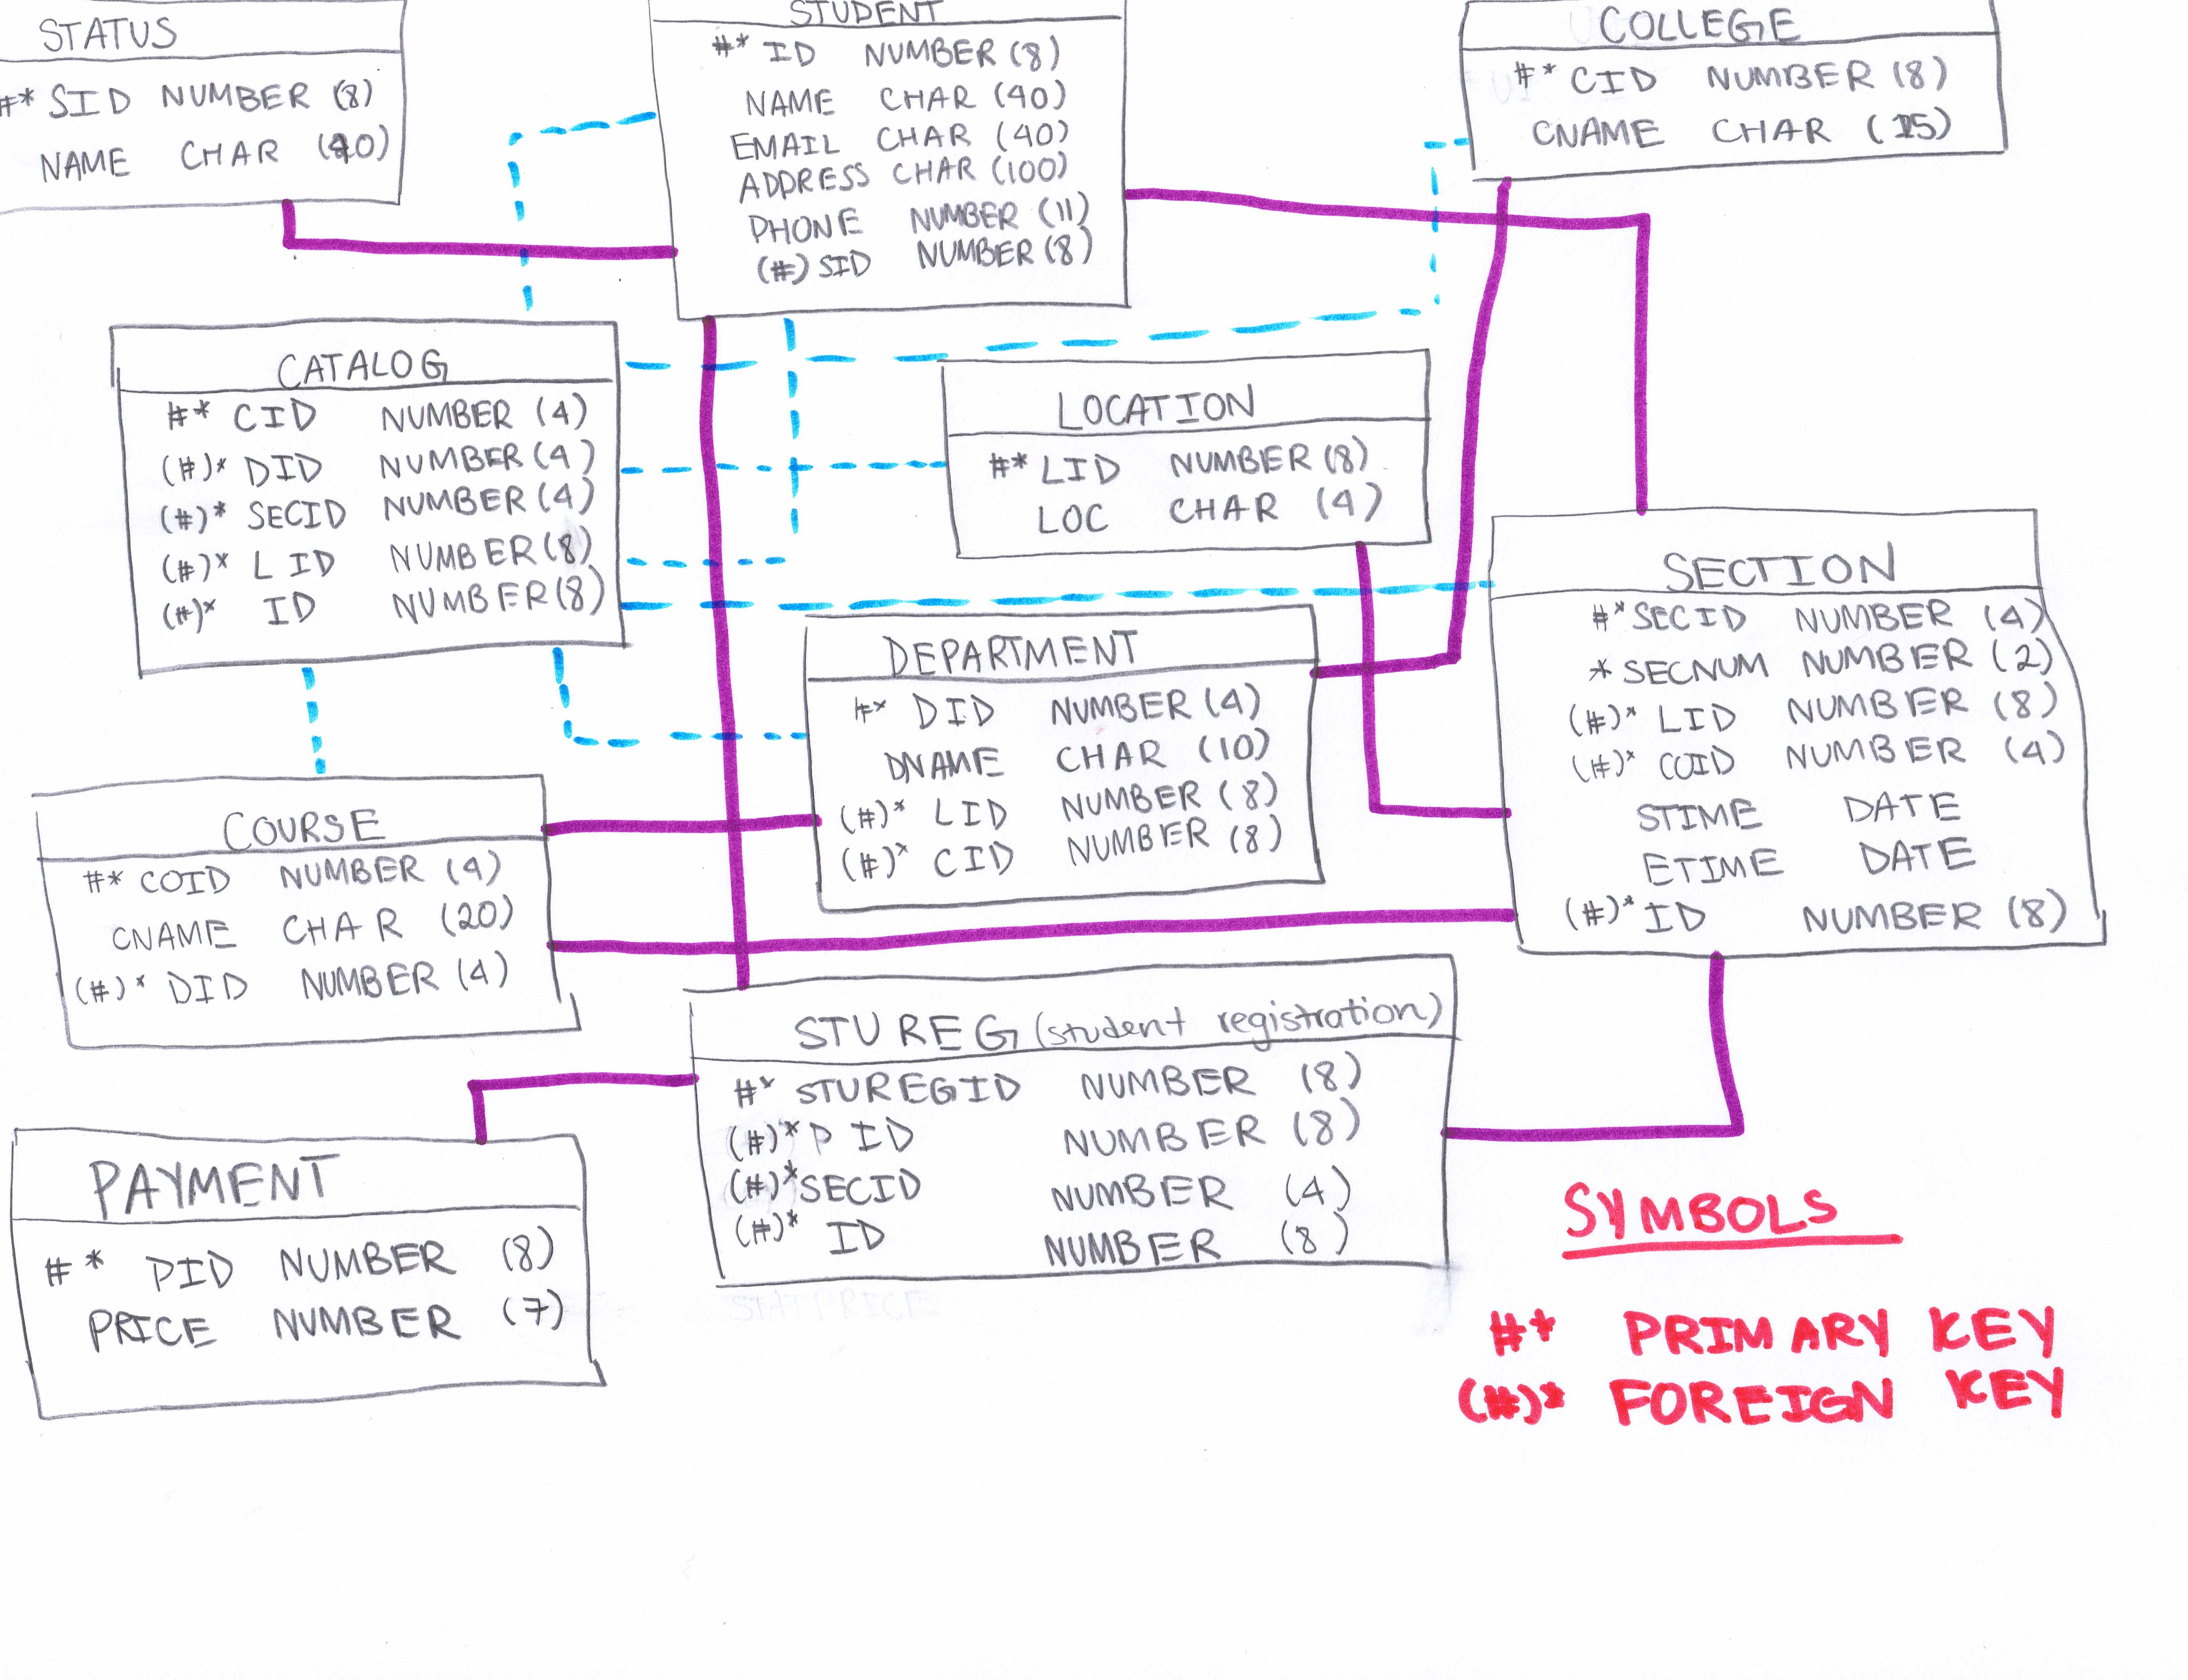 STATUS
#* SID NUMBER (8)
NAME CHAR (40)
STUDENT
#* ID NUMBER (8)
NAME CHAR (40)
EMAIL CHAR (40)
ADDRESS CHAR (100)
PHONE NUMBER (11)
(#) SID NUMBER (8)
COLLEGE
#* CID NUMBER (8)
CNAME CHAR (15)
CATALOG
#* CID NUMBER (4)
(#)* DID NUMBER (4)
(#)* SECID NUMBER (4)
(#)* LID NUMBER (8)
(#)* ID NUMBER (8)
LOCATION
#* LID NUMBER (8)
LOC CHAR (4)
SECTION
#* SECID NUMBER (4)
* SECNUM NUMBER (2)
(#)* LID NUMBER (8)
(#)* COID NUMBER (4)
STIME DATE
ETIME DATE
(#)* ID NUMBER (8)
DEPARTMENT
#* DID NUMBER (4)
DNAME CHAR (10)
(#)* LID NUMBER (8)
(#)* CID NUMBER (8)
COURSE
#* COID NUMBER (4)
CNAME CHAR (20)
(#)* DID NUMBER (4)
STUREG (student registration)
#* STUREGID NUMBER (8)
(#)* PID NUMBER (8)
(#)* SECID NUMBER (4)
(#)* ID NUMBER (8)
PAYMENT
#* PID NUMBER (8)
PRICE NUMBER (7)
SYMBOLS
#* PRIMARY KEY
(#)* FOREIGN KEY